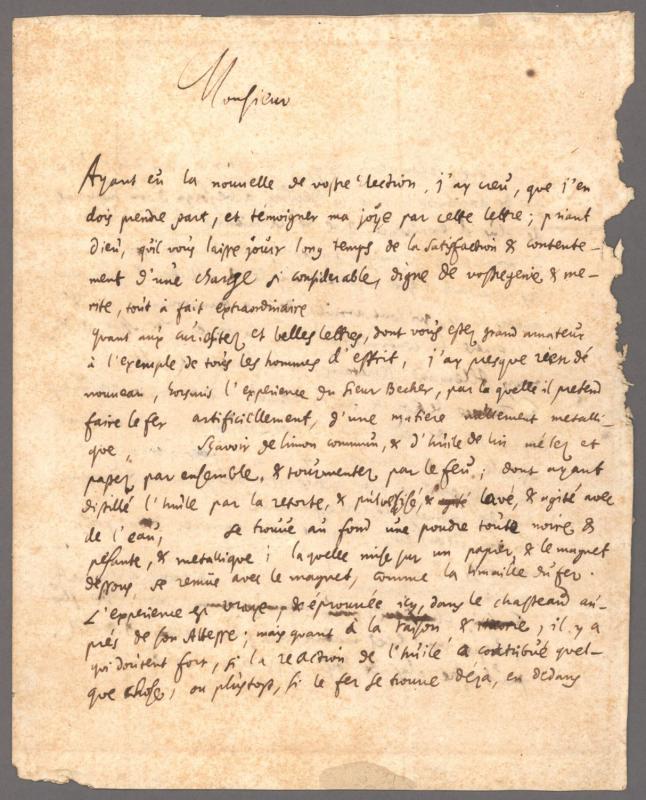 Monsieur
Ayant eu la nouvelle de vostre Election, j'ay creu, que j'en
dois prendre part, et temoigner ma joye par cette lettre; priant
Dieu, qu'il vous laisse jouir long temps de la satisfaction & contente-
ment d'une charge si considerable, digne de vostre genie & me-
rite, tout à fait extraordinaire.
Quant aux curiositez et belles lettres, dont vous estez grand amateur
à l'exemple de tous les hommes d'esprit, j'ay presque rien de
nouveau, horsmis l'experience du Sieur Becher, par la quelle il pretend
faire le fer artificiellement, d'une matiere nullement metalli-
que, sçavoir de limon commun, & d'huile de lin mélez et
passez par ensemble, & tourmentez par le feu; dont ayant
distillé l'huile par la retorte, & pulverisé, & lavé, & agité avec
de l'eau, se trouve au fond une poudre toute noire &
pesante, & metallique; laquelle mise sur un papier, & le magnet
dessous, se remue avec le magnet, comme la limaille du fer.
L'experience est vraye, & éprouvée icy, dans le chasteau au-
prés de son Altesse; mais quant à la raison & , il y a
qui doutent fort, si la reaction de l'huile a contibué quel-
que chose, ou plustost, si le fer se trouve déja, en dedans